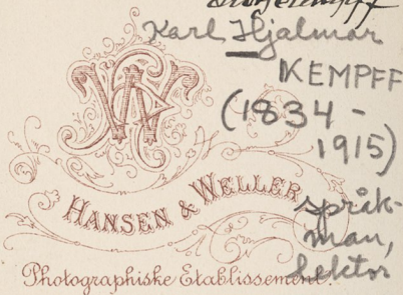 Karl Hjalmar
KEMPFF
(1834 -
1915)
språk-
man,
lektor
HANSEN & WELLER
Photographiske Etablissement.